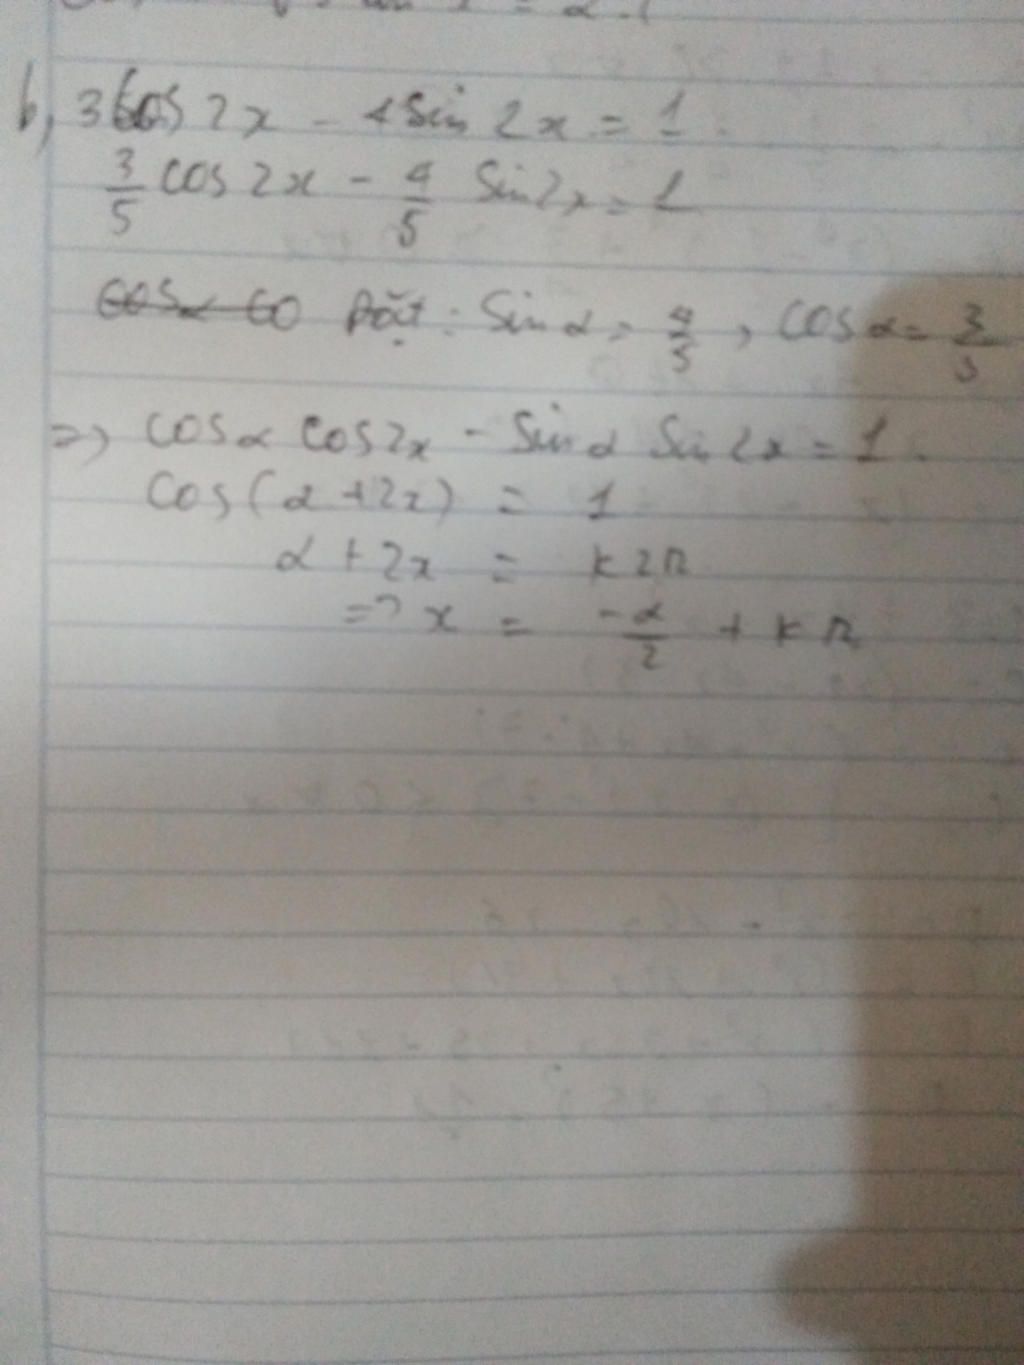 b, 3cos 2x - 4 sin 2x = 1.
3/5 cos 2x - 4/5 sin 2x = 1
Đặt: sin α = 4/5, cos α = 3/5
=> cos α cos 2x - sin α sin 2x = 1.
cos(α + 2x) = 1
α + 2x = k2π
=> x = -α/2 + kπ